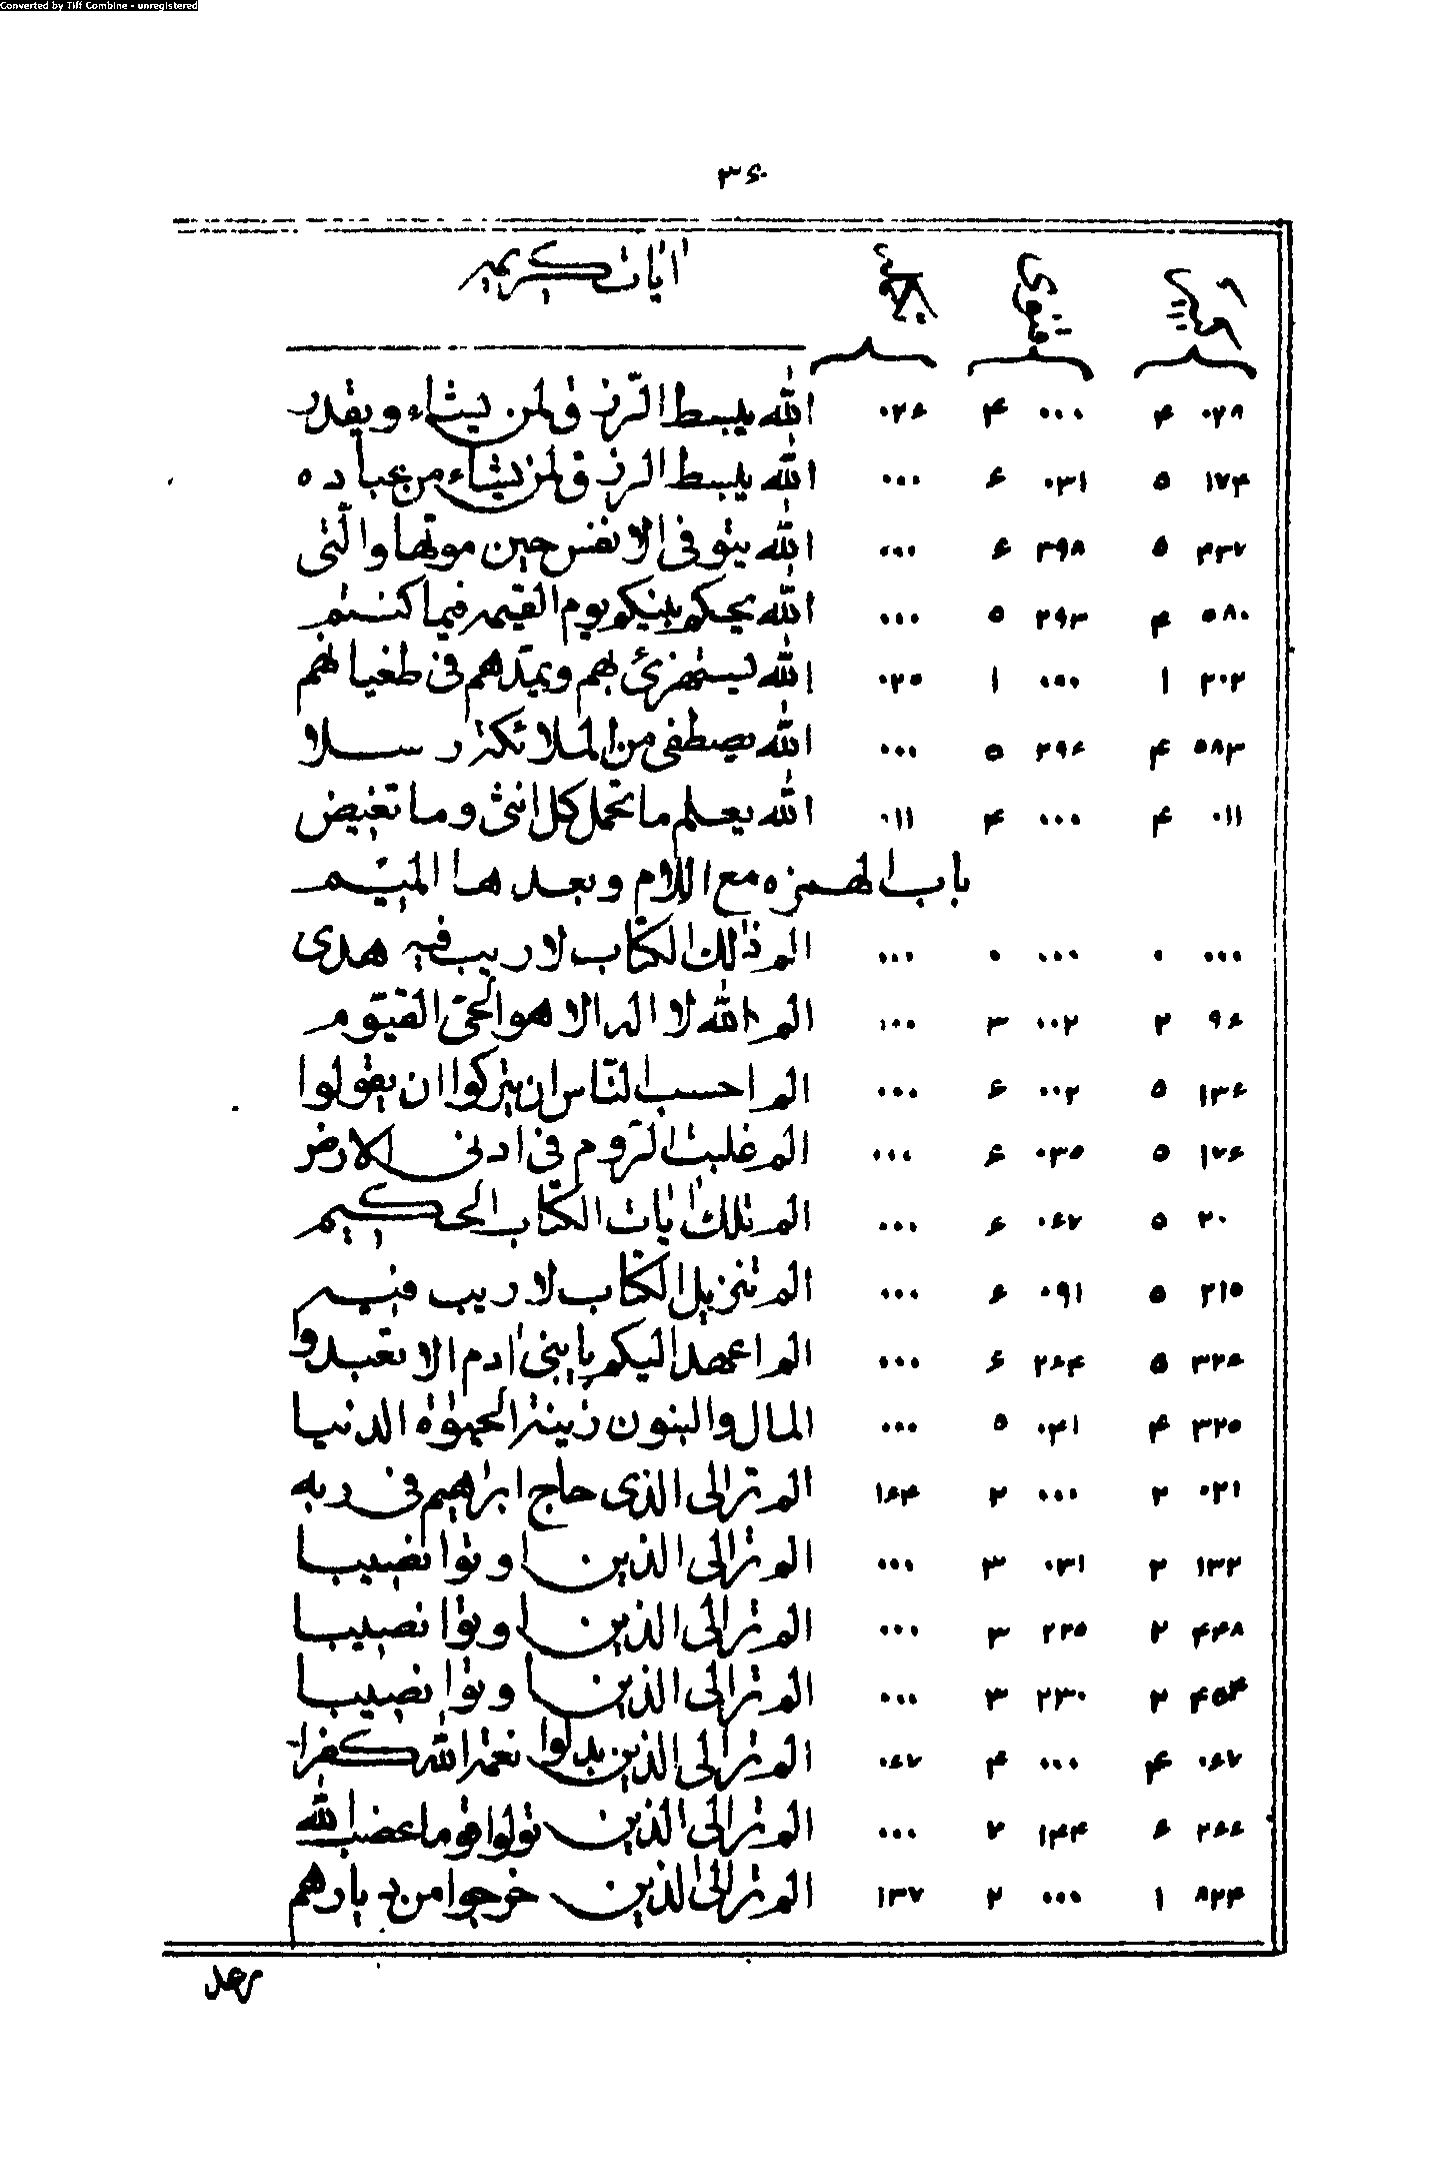 Converted by Tiff Combine - unregistered
۳۶
ایات کریمه
۰۲۸ ۴ ۰۰۰ ۴ ۰۲۶ الله یبسط الرّزق لمن یشاء و یقدر
۱۷۴ ۵ ۰۳۱ ۶ ۰۰۰ الله یبسط الرزق لمن یشاء من عباده
۴۳۷ ۵ ۳۹۸ ۶ ۰۰۰ الله یتوفی الانفس حین موتها والّتی
۵۸۰ ۴ ۲۹۳ ۵ ۰۰۰ الله یحکم بینکم یوم القیمه فیما کنتم
۲۰۲ ۱ ۰۰۰ ۱ ۰۲۵ الله یستهزئ بهم ویمدّهم فی طغیانهم
۵۸۳ ۴ ۲۹۶ ۵ ۰۰۰ الله یصطفی من الملائکة رسلا
۰۱۱ ۴ ۰۰۰ ۴ ۰۱۱ الله یعلم ما تحمل کل انثی وما تغیض
باب الهمزه مع اللام وبعدها المیم
۰۰۰ ۰ ۰۰۰ ۰ ۰۰۰ الم ذلک الکتاب لا ریب فیه هدی
۹۶ ۲ ۰۰۲ ۳ ۰۰۰ الم الله لا اله الا هو الحیّ القیّوم
۱۳۶ ۵ ۰۰۲ ۶ ۰۰۰ الم احسب النّاس ان یترکوا ان یقولوا
۱۷۶ ۵ ۰۳۵ ۶ ۰۰۰ الم غلبت الرّوم فی ادنی الارض
۲۰ ۵ ۰۶۷ ۶ ۰۰۰ الم تلک ایات الکتاب الحکیم
۲۱۵ ۵ ۰۹۱ ۶ ۰۰۰ الم تنزیل الکتاب لا ریب فیه
۳۲۶ ۵ ۲۶۴ ۶ ۰۰۰ الم اعهد الیکم یا بنی ادم الا تعبدوا
۳۲۵ ۴ ۰۴۱ ۵ ۰۰۰ المال والبنون زینة الحیوة الدنیا
۰۲۱ ۲ ۰۰۰ ۲ ۱۶۴ الم تر الی الذی حاج ابراهیم فی ربه
۱۳۲ ۲ ۰۳۱ ۳ ۰۰۰ الم تر الی الذین اوتوا نصیبا
۴۴۸ ۲ ۲۲۵ ۳ ۰۰۰ الم تر الی الذین اوتوا نصیبا
۴۵۴ ۲ ۲۳۰ ۳ ۰۰۰ الم تر الی الذین اوتوا نصیبا
۰۶۷ ۴ ۰۰۰ ۴ ۰۶۷ الم تر الی الذین بدلوا نعمة الله کفرا
۲۶۶ ۶ ۱۴۴ ۷ ۰۰۰ الم تر الی الذین تولوا قوما غضب الله
۸۲۴ ۱ ۰۰۰ ۲ ۱۳۷ الم تر الی الذین خرجوا من دیارهم